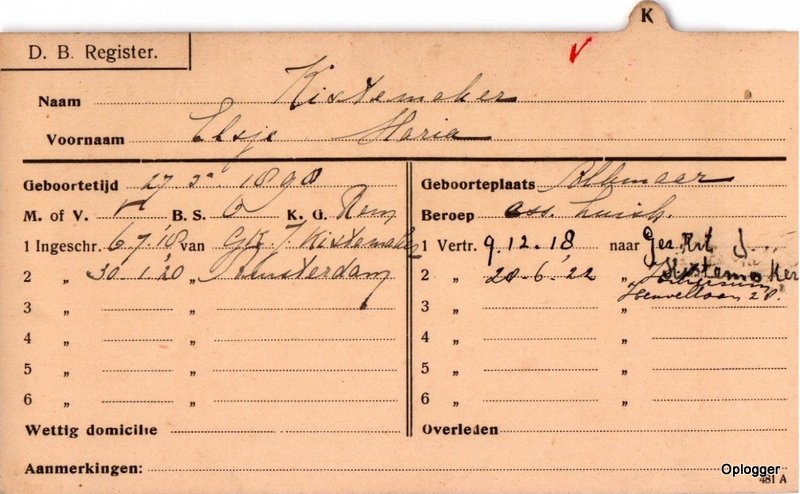 K
D. B. Register.
Naam Kistemaker
Voornaam Elsje Maria
Geboortetijd 27 1898
M. of V. V B. S. O K. G. Rom
1 Ingeschr. 6.7.'18 van J. Kistemaker
2 „ 30.1.'20 „ Amsterdam
3 „ „
4 „ „
5 „ „
6 „ „
Wettig domicilie
Geboorteplaats Alkmaar
Beroep ass. huish.
1 Vertr. 9.12.18 naar Gez. Krt J.
Kistemaker
2 „ 28-6.'22 „ Hilversum
Heuvellaan 28.
3 „ „
4 „ „
5 „ „
6 „ „
Overleden
Aanmerkingen:
Oplogger
481 A